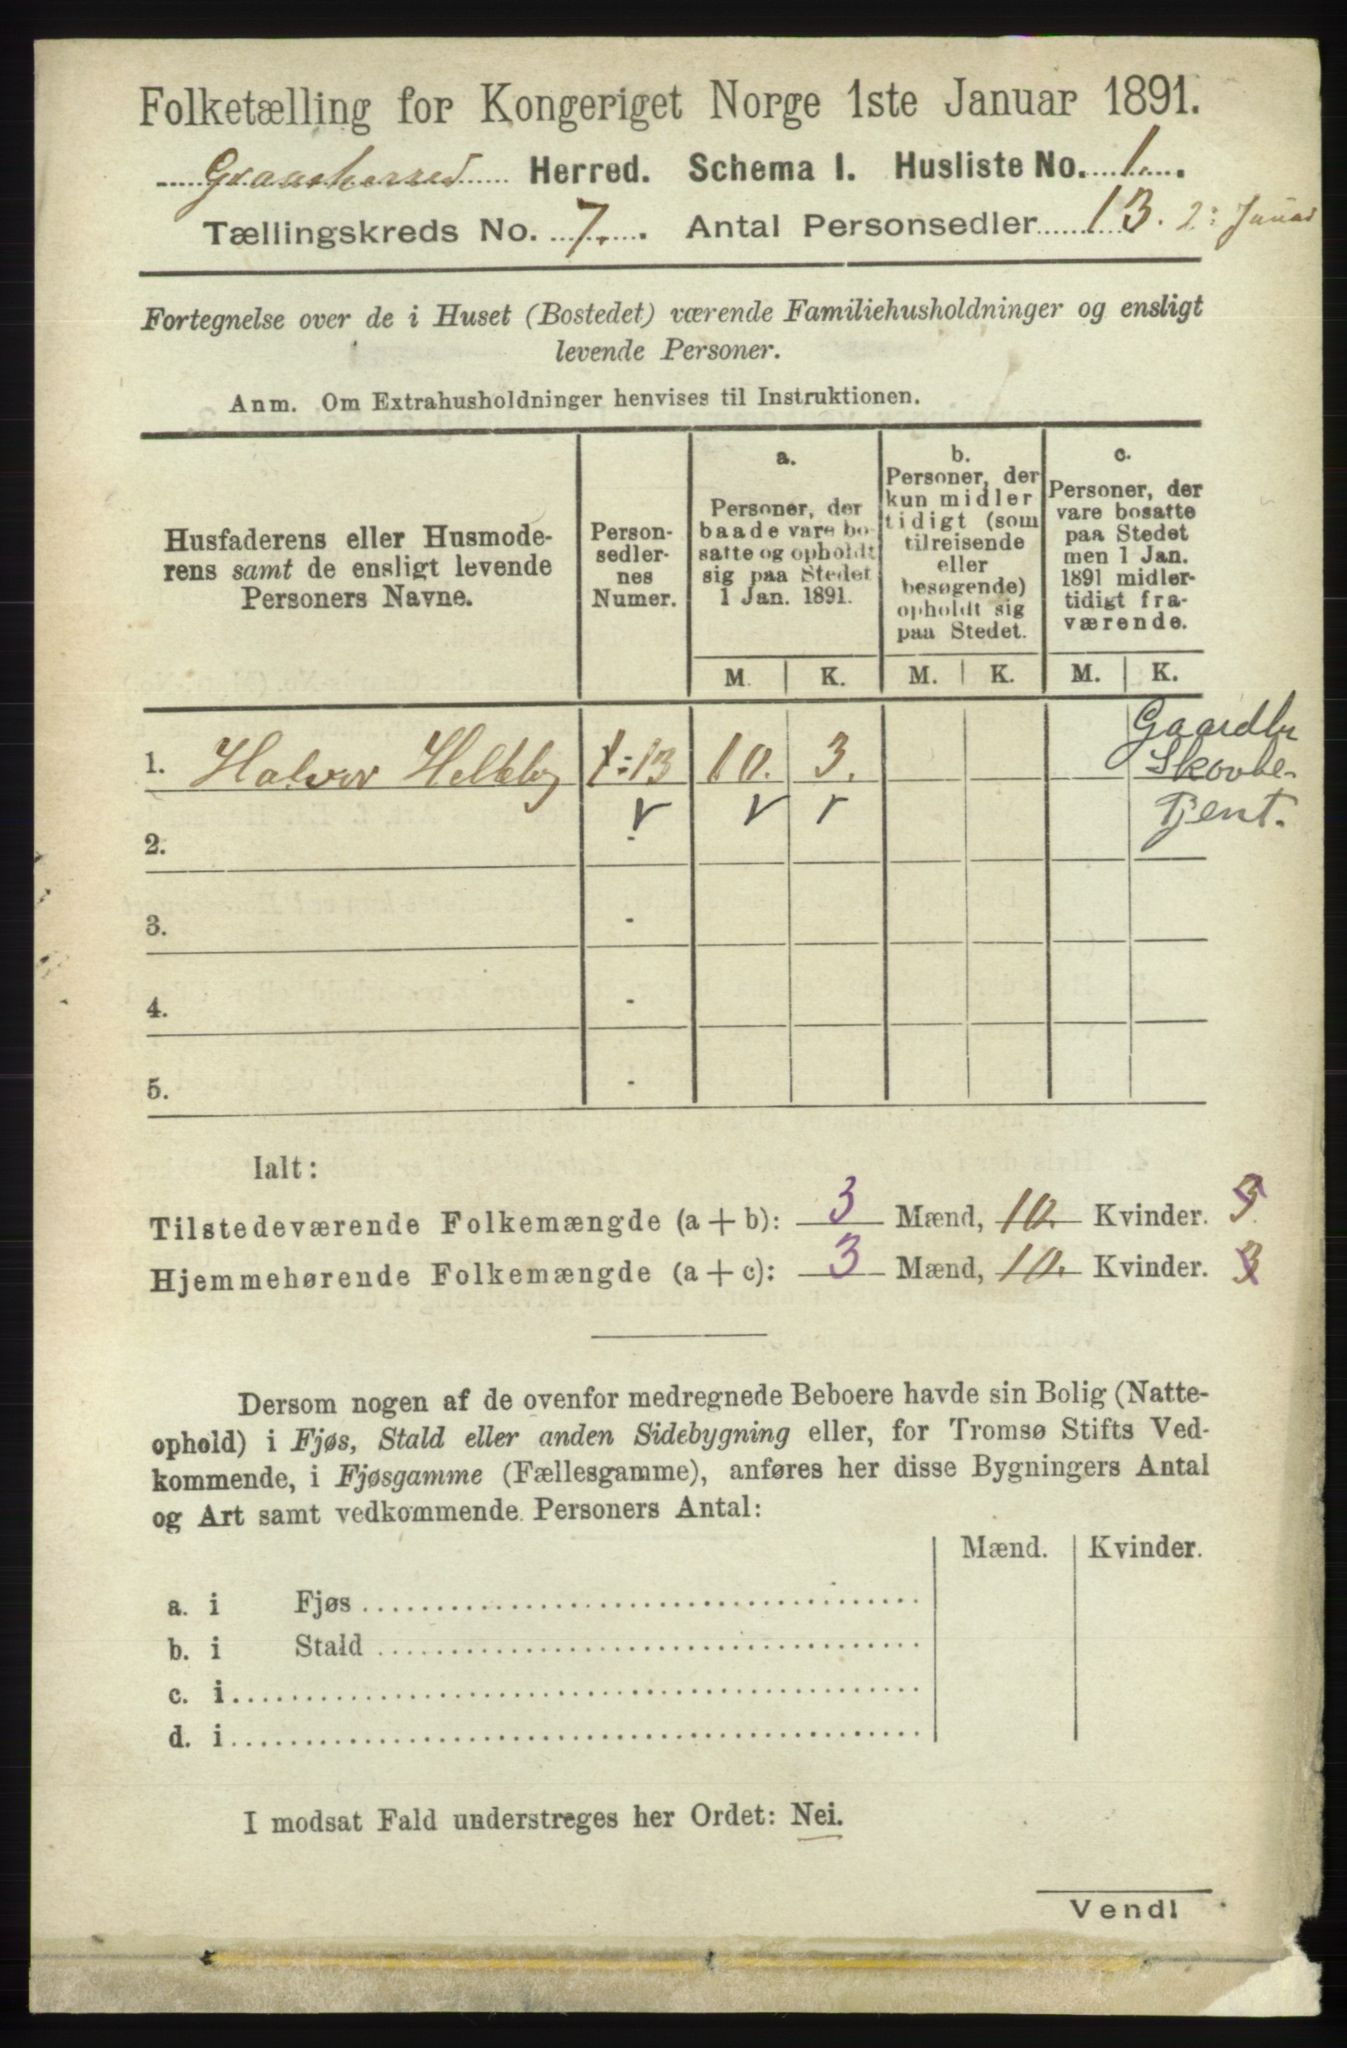 Folketælling for Kongeriget Norge 1ste Januar 1891.
Herred. Schema 1. Husliste No. 1.
Tællingskreds No. 7. Antal Personsedler 13. 2: Januar
Fortegnelse over de i Huset (Bostedet) værende Familiehusholdninger og ensligt
levende Personer.
Anm. Om Extrahusholdninger henvises til Instruktionen.
Husfaderens eller Husmode-
rens samt de ensligt levende
Personers Navne.
Person-
sedler-
nes
Numer.
a.
Personer, der
baade vare bo-
satte og opholdt
sig paa Stedet
1 Jan. 1891.
b.
Personer, der
kun midler-
tidigt (som
tilreisende
eller
besøgende)
opholdt sig
paa Stedet.
c.
Personer, der
vare bosatte
paa Stedet
men 1 Jan.
1891 midler-
tidigt fra-
værende.
M. K. M. K. M. K.
1. Halvor 1-13 10. 3.
Gaardbr
Skovbe-
tjent.
2. -
3. -
4. -
5. -
Ialt:
Tilstedeværende Folkemængde (a + b): 3 Mænd, 10. Kvinder. 3.
Hjemmehørende Folkemængde (a + c): 3 Mænd, 10. Kvinder. 3
Dersom nogen af de ovenfor medregnede Beboere havde sin Bolig (Natte-
ophold) i Fjøs, Stald eller anden Sidebygning eller, for Tromsø Stifts Ved-
kommende, i Fjøsgamme (Fællesgamme), anføres her disse Bygningers Antal
og Art samt vedkommende Personers Antal:
Mænd. Kvinder.
a. i Fjøs
b. i Stald
c. i
d. i
I modsat Fald understreges her Ordet: Nei.
Vend!